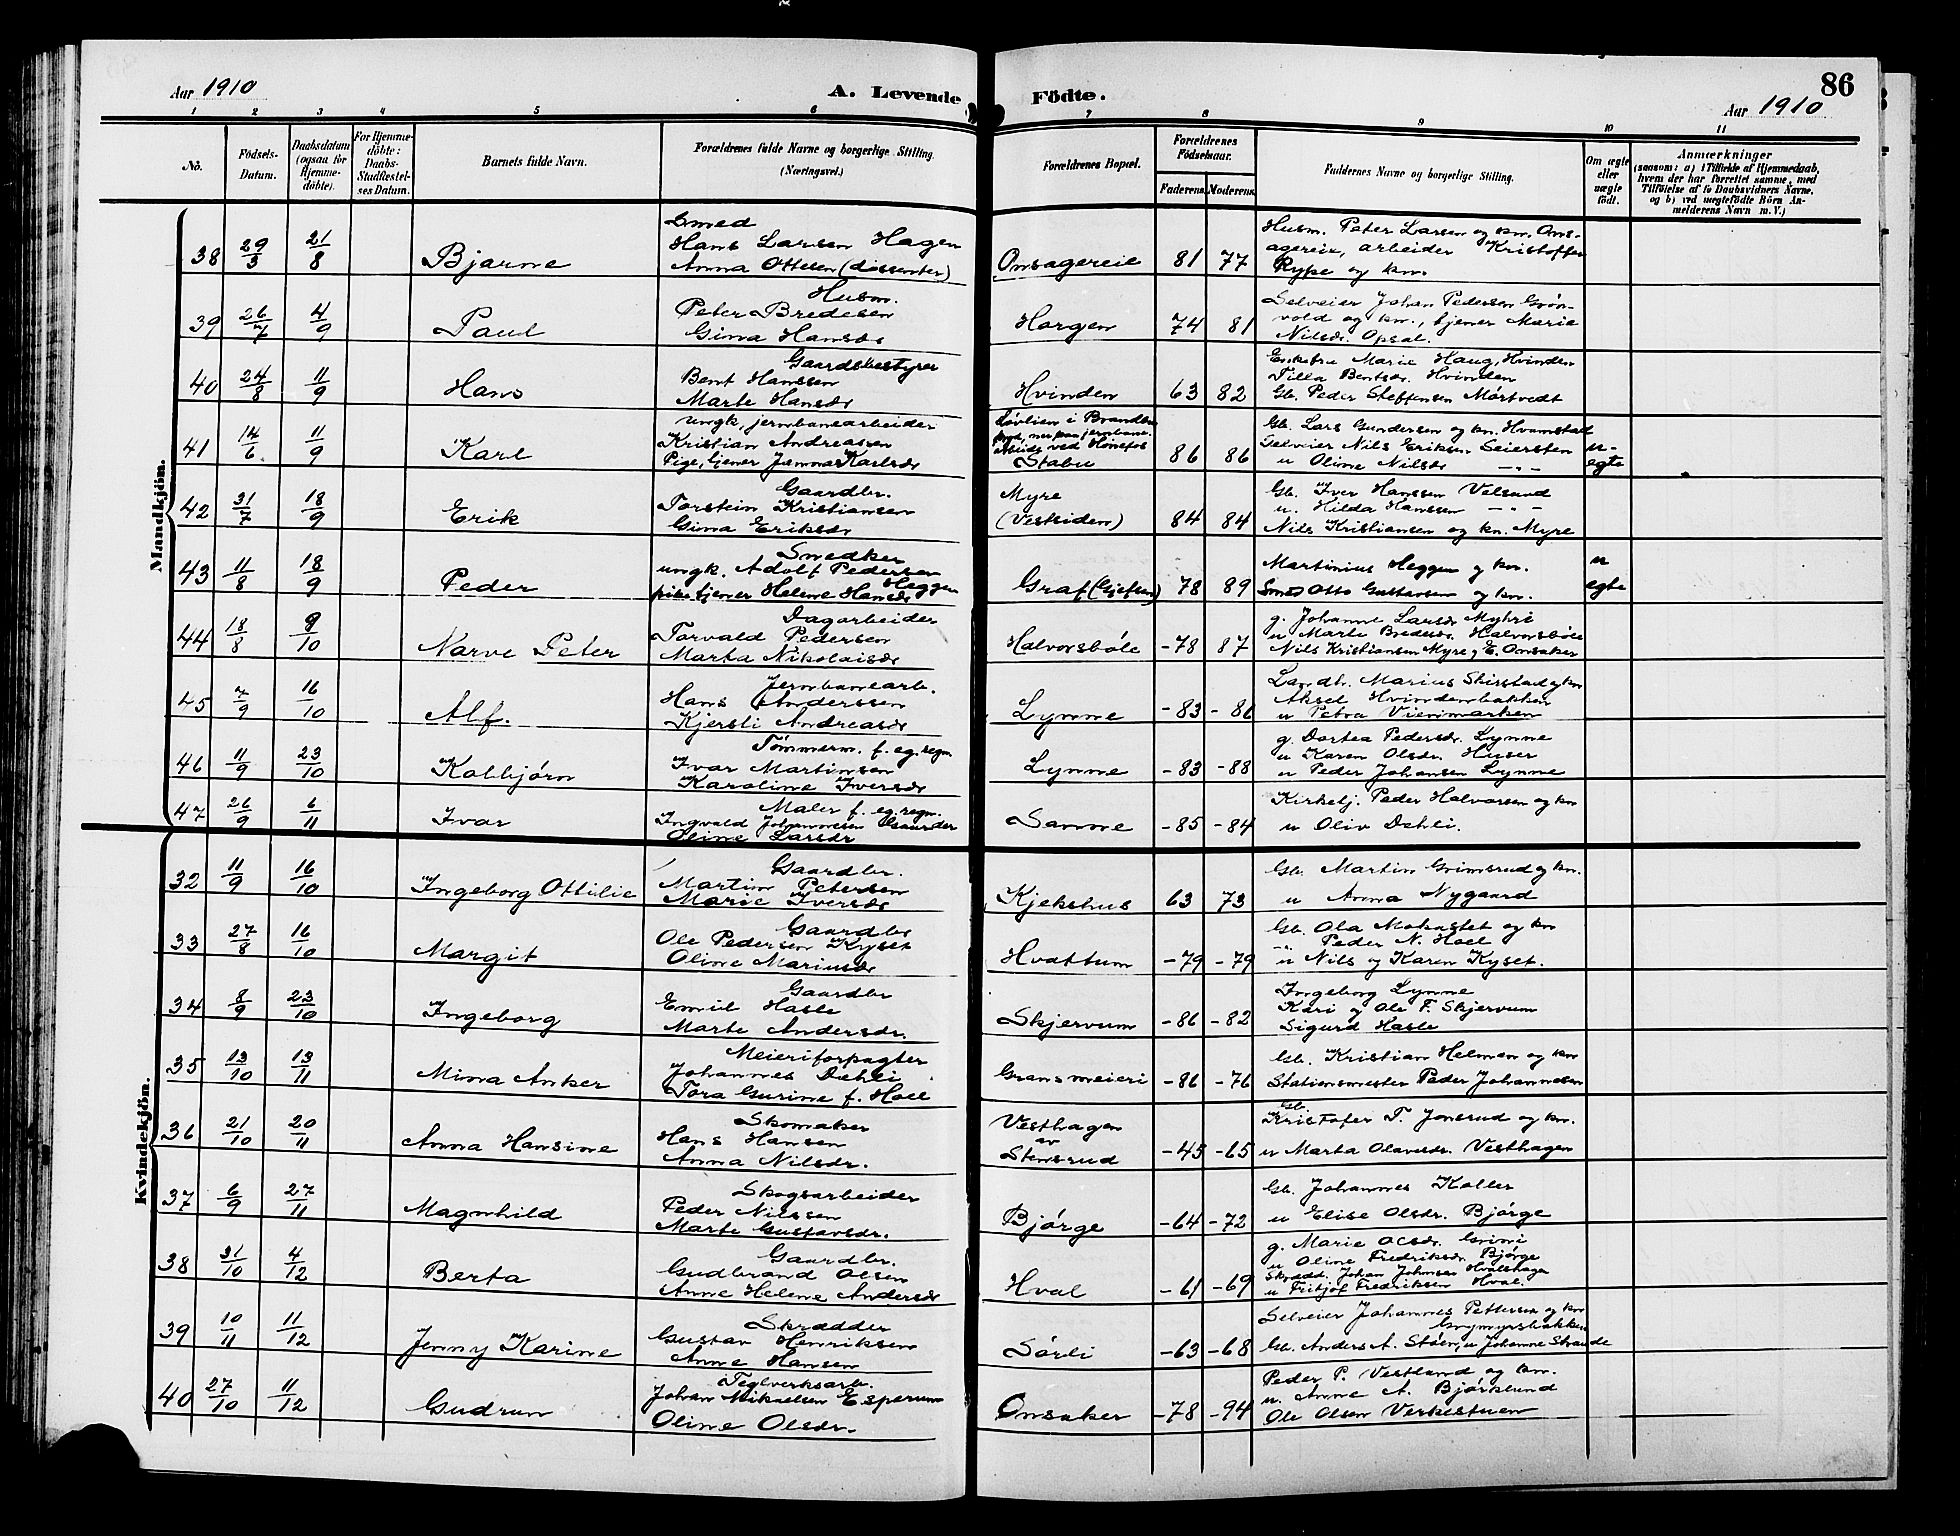 Aar 1910
A. Levende Födte.
86
Aar 1910
1 2 3 4 5 6 7 8 9 10 11
No.
Födsels-Datum.
Daabsdatum (ogsaa for Hjemmedöbte).
For Hjemmedöbte: Daabs-Stadfæstelses Datum.
Barnets fulde Navn.
Forældrenes fulde Navne og borgerlige Stilling. (Næringsvei.)
Forældrenes Bopæl.
Forældrenes Födselsaar.
Faderens. Moderens.
Faddernes Navne og borgerlige Stilling.
Om ægte eller uægte födt.
Anmærkninger
(saasom: a) i Tilfælde af Hjemmedaab, hvem der har forrettet samme, med Tilföielse af to Daabsvidners Navne, og b) ved uægtefödte Börn Anmelderens Navn m. V.)
Mandkjön.
38 29/3 21/8 Bjarne
Smed
Hans Larsen Hagen
Anna Ottesen (dissenter)
Onsagereie 81 77
Husm. Peter Larsen og kn. Ons-
agereie, arbeider Kristoffer
Rype og kn.
39 26/7 4/9 Paul
Husm.
Peter Bredesen
Gina Hansdr
Horgen 74 81
Selveier Johan Pedersen Grøn-
vold og kn., tjener Marie
Nilsdr. Opsal.
40 24/8 11/9 Hans
Gaardsbestyrer
Bent Hanssen
Marte Hansdr
Hvinden 63 82
Enkefru Marie Haug, Hvinden
Tilla Bentsdr. Hvinden
Gb. Peder Steffensen Mørtvedt
41 14/6 11/9 Karl
ungk, jernbanearbeider
Kristian Andreassen
Pige, tjener Jenna Karlsdr
Løvlien i Brandbu
ved Hønefos
Stabu 86 86
Gb. Lars Gundersen og kn. Hvamstad
Selveier Nils Eriksen Seiersten
u Oline Nilsdr — " —
u-
egte
42 31/7 18/9 Erik
Gaardbr.
Torstein Kristiansen
Gina Eriksdr
Myre
(Vestsiden) 84 84
Gb. Iver Hanssen Velsand
u. Hilda Hanssen — " —
Nils Kristiansen og kn. Myre
43 11/8 18/9 Peder
Snedker
ungk. Adolf Pedersen
Heggen
pike tjener Helene Hansdr
Graf (Gjefsen) 78 89
Martinius Heggen og kn.
Smed Otto Gustavsen og kn.
u
egte
44 18/8 9/10 Narve Peter
Dagarbeider
Torvald Pedersen
Marta Nikolaisdr
Halvorsbøle -78 87
g. Johanne Larsdr Myhre
u Marte Bredesdr. Halvorsbøle
Nils Kristiansen Myre, E. Onsaker
45 7/9 16/10 Alf.
Jernbanearb.
Hans Anderssen
Kjersti Andreasdr
Lynne -83 -86
Landh. Marius Skirstad og kn
Aksel Hvindenbakken
u Petra Vienmarken
46 11/9 23/10 Kolbjørn
Tømmerm. f. eg. regn
Ivar Martinsen
Karoline Iversdr
Lynne -83 -88
g. Dortea Pedersdr. Lynne
u Karen Olsdr. Huser
u Peder Johansen Lynne
47 26/9 6/11 Ivar
Maler f. eg. regn.
Ingvald Johannesen
Oline Larsdr
Sanne -85 -84
Kirketj. Peder Halvorsen og kn
u Oliv Dehli.
Kvindekjön.
32 11/9 16/10 Ingeborg Ottilie
Gaardbr.
Martin Petersen
Marie Iversdr
Kjekshus 63 73
Gb. Martin Grimsrud og kn.
u Anna Nygaard
33 27/8 16/10 Margit
Gaardbr
Ole Pedersen Kyset
Oline Mariusdr
Hvattum -79 -79
Gb. Ola Mohagtet og kn
" Peder N. Hoel
u Nils og Karen Kyset.
34 8/9 23/10 Ingeborg
Gaardbr
Emil Hasle
Marte Andersdr.
Skjervum -86 -82
Ingeborg Lynne
Kari og Ole F. Skjervum
Sigurd Hasle
35 13/10 13/11 Mina Anker
Meieriforpagter
Johannes Dehli
Tora Gurine f. Hoel
Grans meieri -86 -76
Gb. Kristian Helmen og kn
Stationsmester Peder Johannesen
36 21/10 20/11 Anna Hansine
Skomaker
Hans Hansen
Anna Nilsdr.
Vesthagen
av
Stensrud -45 -65
Gb.
Kristofer T. Jonsrud og kn.
u Marta Olavesdr. Vesthagen
37 6/9 27/11 Magnhild
Skogsarbeider
Peder Nilssen
Marte Gustavsdr.
Bjørge -64 -72
Gb. Johannes Koller
u Elise Olsdr. Bjørge
38 31/10 4/12 Berta
Gaardbr.
Gudbrand Olsen
Anne Helene Andersdr
Hval -61 -69
g. Marie Olsdr. Grini
u Oline Fredriksdr Bjørge
Skrædd. Johan Johnsen Hvalshagen
u Fritjof Fredriksen Hval.
39 10/11 11/12 Jenny Karine
Skrædder
Gustav Henriksen
Anne Hansen
Sørli -63 -68
Selveier Johannes Pettersen og kn
Grymyrsbakken
Gb. Anders A. Støen, u Johanne Strande
40 27/10 11/12 Gudrun
Teglverksarb.
Johan Mikaelsen Esperum
Oline Olsdr.
Onsaker -78 -94
Peder P. Vestland og kn.
u. Anne A. Bjørklund
Ole Olsen Verkestuen